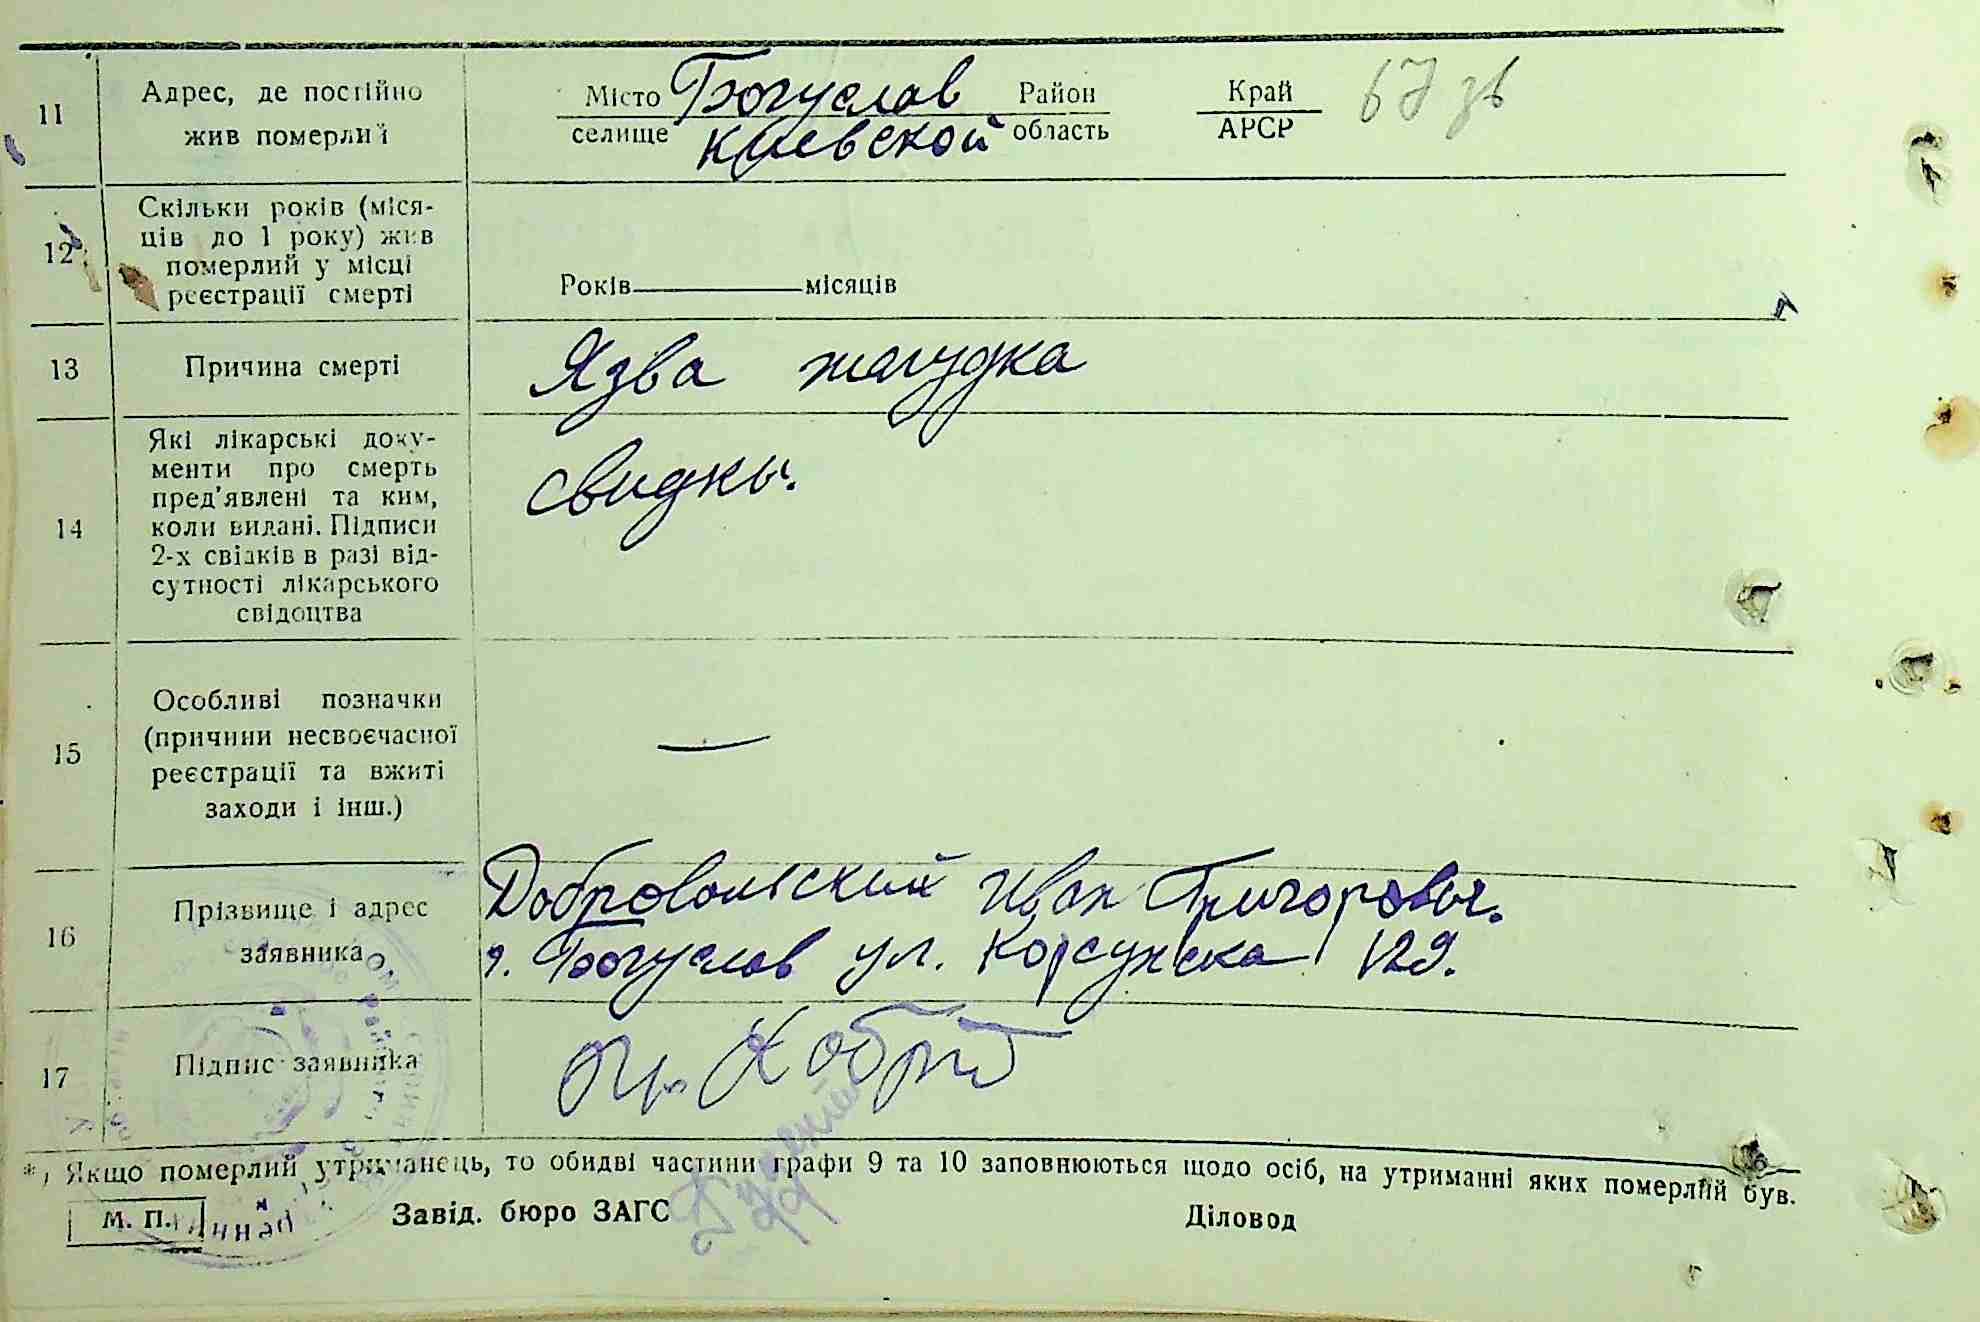 11 Адрес, де постійно
жив померлий
Місто Богуслав Район Край 67 зв
селище Киевской область АРСР
12 Скільки років (міся-
ців до 1 року) жив
померлий у місці
реєстрації смерті
Років місяців
13 Причина смерті Язва жалудка
14 Які лікарські доку-
менти про смерть
пред'явлені та ким,
коли видані. Підписи
2-х свідків в разі від-
сутності лікарського
свідоцтва
свидки.
15 Особливі позначки
(причини несвоєчасної
реєстрації та вжиті
заходи і інш.)
—
16 Прізвище і адрес
заявника
Добровольский Иван Григорович.
г. Богуслав ул. Корсунска 129.
17 Підпис заявника
*) Якщо померлий утриманець, то обидві частини графи 9 та 10 заповнюються щодо осіб, на утриманні яких померлий був.
М. П. Завід. бюро ЗАГС Діловод